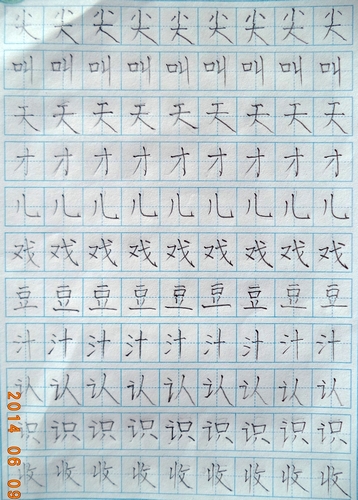 尖尖尖尖尖尖尖尖尖
叫叫叫叫叫叫叫叫叫
天天天天天天天天天
才才才才才才才才才
儿儿儿儿儿儿儿儿儿
戏戏戏戏戏戏戏戏戏
豆豆豆豆豆豆豆豆豆
汁汁汁汁汁汁汁汁汁
认认认认认认认认认
识识识识识识识识识
收收收收收收收收收
2014 06 09